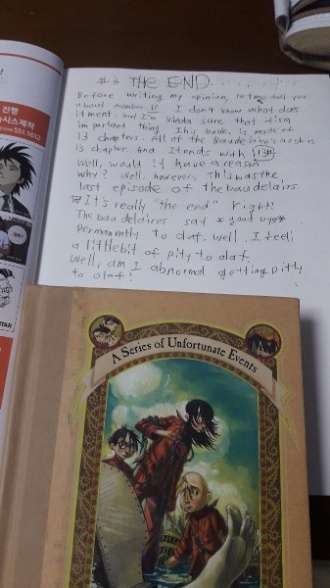 #3 THE END.
Before writing my opinion, let me tell you
about number 13 I don't know what does
it ment. but I'm kinda sure that it's a
important thing. This book, is made of
13 chapters. All of the Baudelaire's is
13 chapter And it ends with 13th
Well, would it have a reason
why? Well, however, This was the
last episode of the baudelairs.
It's really "the end" right!
The baudelaires say "good bye"
permanently to olaf. well I feel
a little bit of pity to olaf.
Well, am I abnormal getting pity
to olaf?
진행
시스제작
551.1612
STAR
A Series of Unfortunate Events